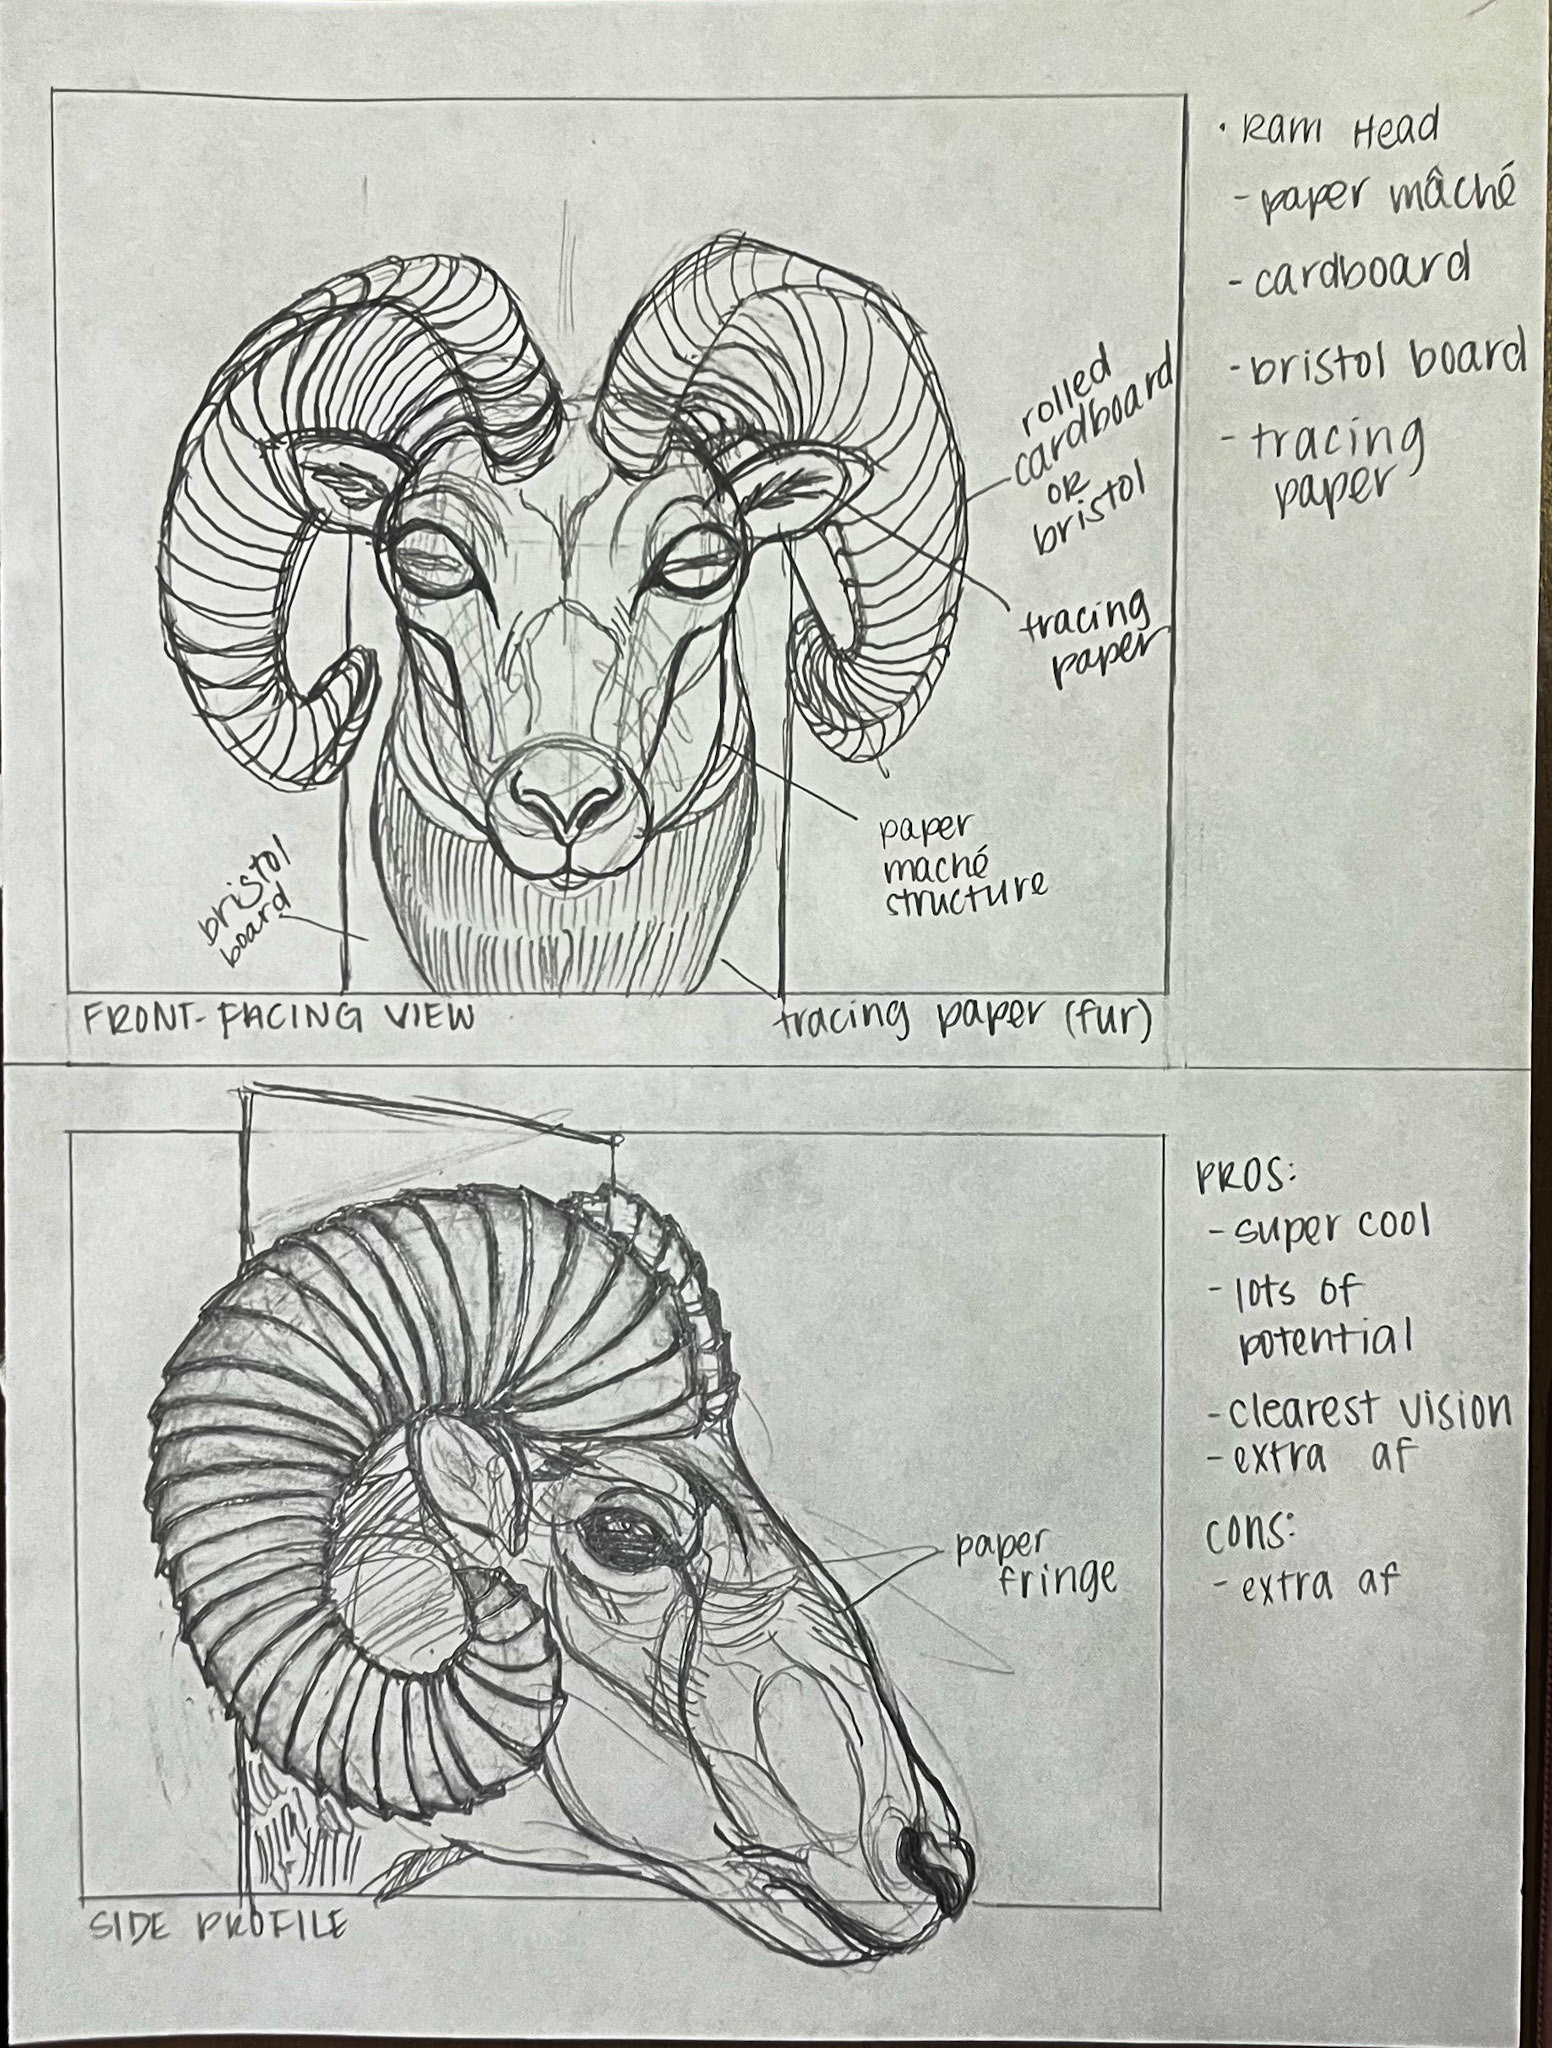 • Ram Head
- paper mâché
- cardboard
- bristol board
- tracing
paper
rolled
cardboard
OR
bristol
tracing
paper
paper
maché
structure
bristol
board
FRONT-FACING VIEW
tracing paper (fur)
PROS:
- super cool
- lots of
potential
- clearest vision
- extra af
cons:
- extra af
paper
fringe
SIDE PROFILE